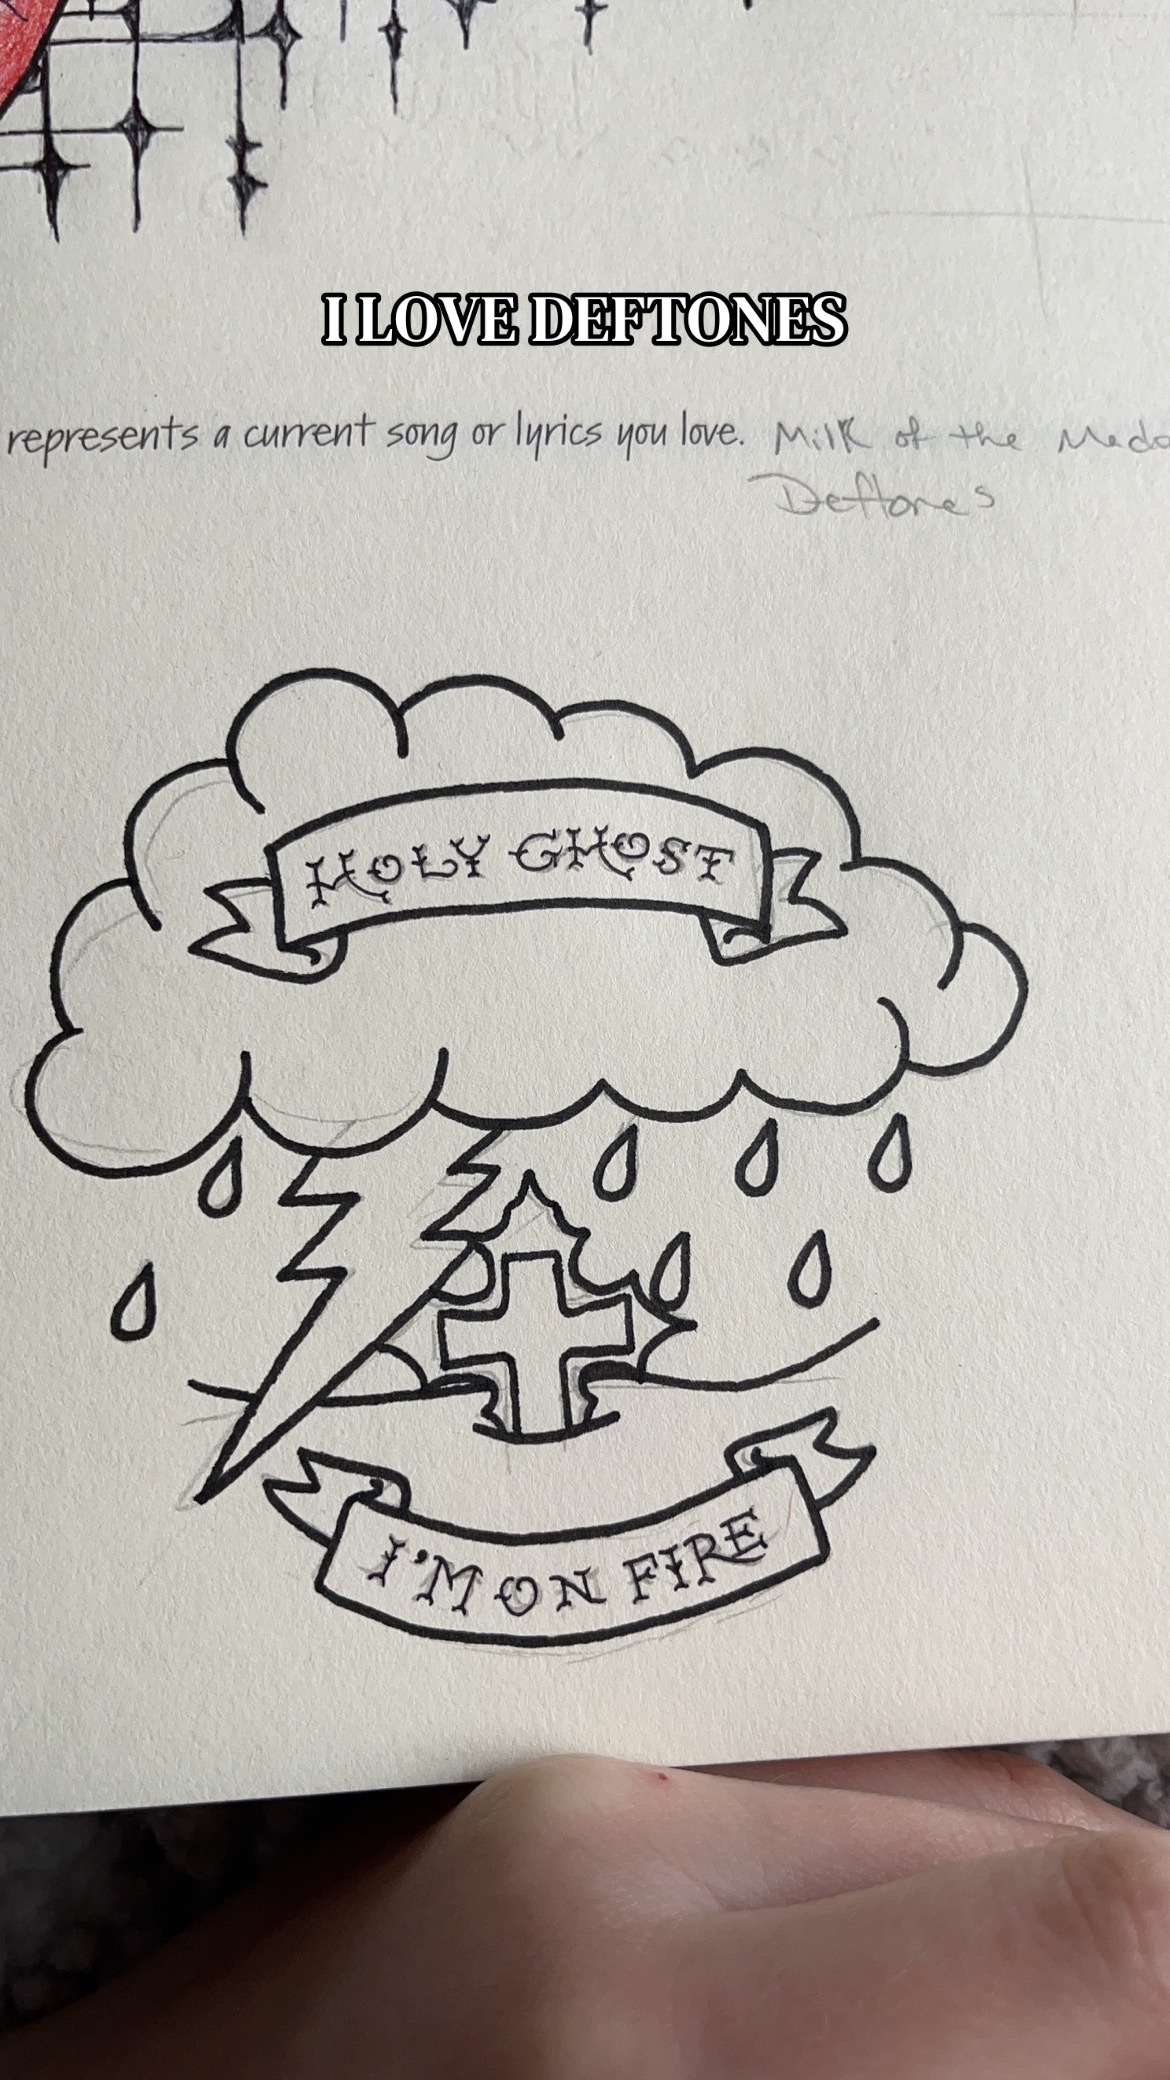 I LOVE DEFTONES
represents a current song or lyrics you love. Milk of the
Deftones
HOLY GHOST
I'M ON FIRE